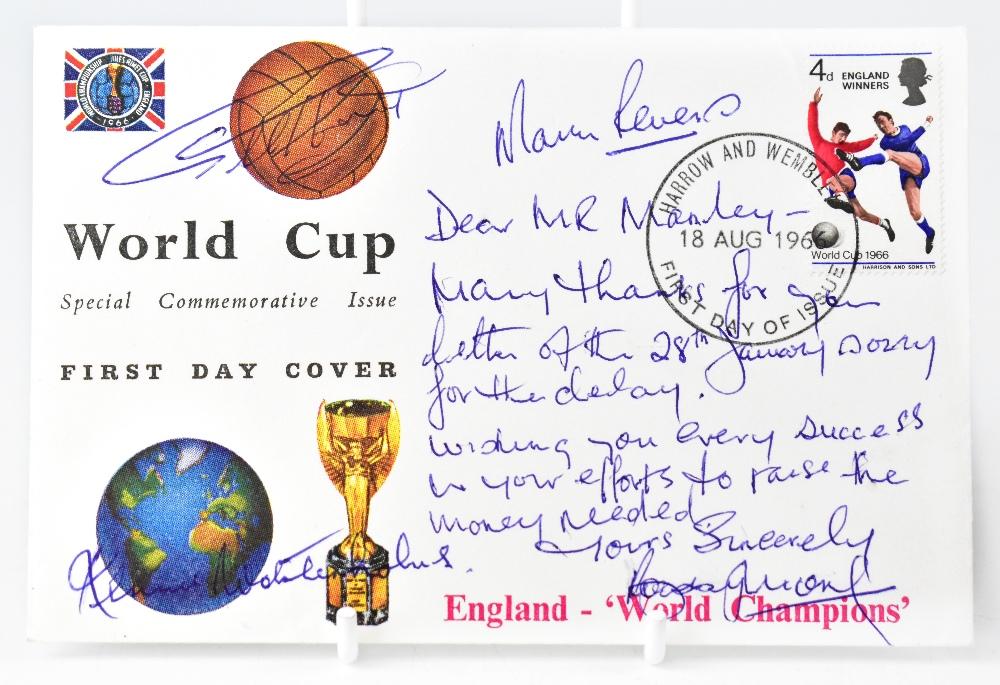 WORLD CHAMPIONSHIP JULES RIMET CUP ENGLAND
1966
World Cup
Special Commemorative Issue
FIRST DAY COVER
4d ENGLAND
WINNERS
World Cup 1966
HARRISON AND SONS LTD
HARROW AND WEMBLEY
18 AUG 1966
FIRST DAY OF ISSUE
Dear MR Manley -
Many thanks for your
letter of the 28th January sorry
for the delay.
Wishing you every success
in your efforts to raise the
money needed
Yours Sincerely
Kenneth Wolstenholme.
England - 'World Champions'